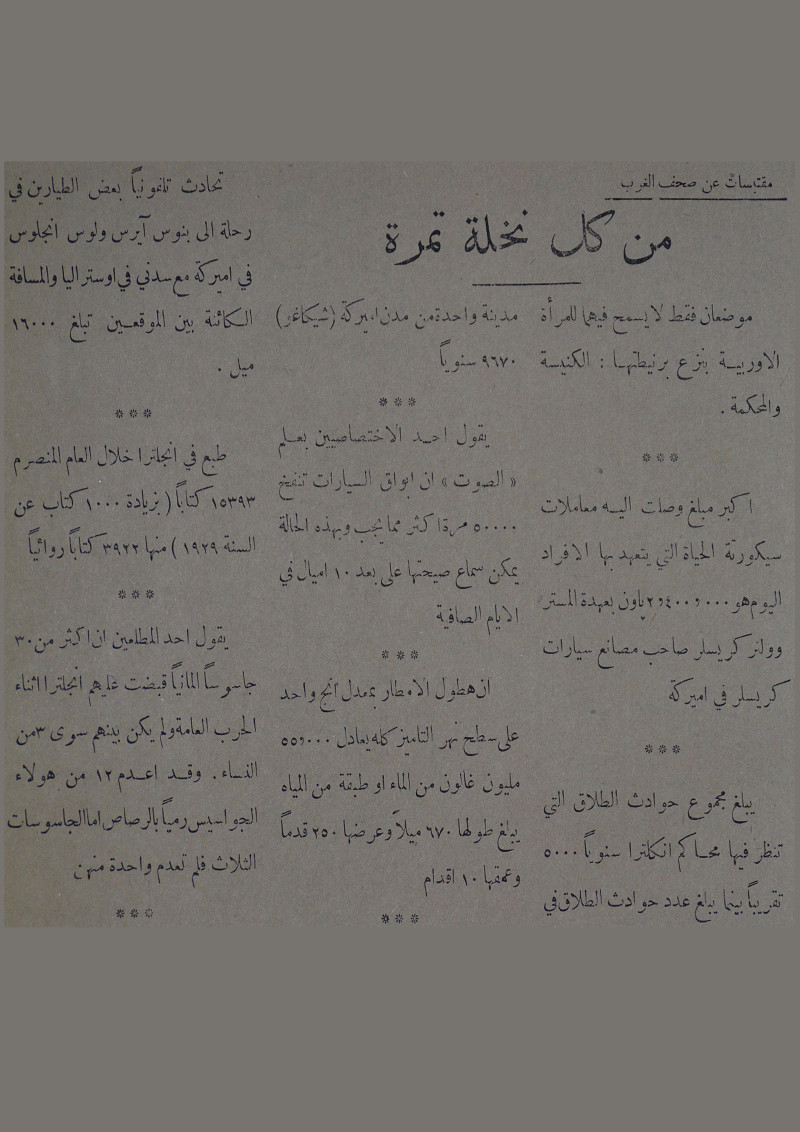 مقتبسات عن صحف الغرب
من كل نخلة تمرة
موضعان فقط لا يسمح فيهما للمرأة
الاوربية بنزع برنيطتها : الكنيسة
والمحكمة .
***
اكبر مبلغ وصلت اليه معاملات
سيكورتة الحياة التي يتعهد بها الافراد
اليوم هو ٢٫٤٠٠٫٠٠٠ باون بعهدة المستر
وولتر كريسلر صاحب مصانع سيارات
كريسلر في اميركة
***
يبلغ مجموع حوادث الطلاق التي
تنظر فيها محاكم انكلترا سنوياً ٥٠٠٠
تقريباً بينما يبلغ عدد حوادث الطلاق في
مدينة واحدة من مدن اميركة (شيكاغو)
٩٦٧٠ سنوياً
***
يقول احد الاختصاصيين بعلم
« الصوت » ان ابواق السيارات تنفخ
٥٠٠٠٠ مرة اكثر مما يجب وبهذه الحالة
يمكن سماع صيحتها على بعد ١٠ اميال في
الايام الصافية
***
ان هطول الامطار بمعدل أنج واحد
على سطح نهر التاميز كله يعادل ٥٥٫٠٠٠
مليون غالون من الماء او طبقة من المياه
يبلغ طولها ٦٧٠ ميلاً وعرضها ٢٥٠ قدماً
وعمقها ١٠ اقدام
***
تحادث تلفونياً بعض الطيارين في
رحلة الى بنوس آيرس ولوس انجلوس
في اميركة مع سدني في اوستراليا والمسافة
الكائنة بين الموقعين تبلغ ١٦٠٠٠
ميل .
***
طبع في انجلترا خلال العام المنصرم
١٥٣٩٣ كتاباً ( بزيادة ١٠٠٠ كتاب عن
السنة ١٩٢٩ ) منها ٣٩٢٢ كتاباً روائياً
***
يقول احد المطلعين ان اكثر من ٣٠
جاسوساً المانياً قبضت عليهم انجلترا اثناء
الحرب العامة ولم يكن بينهم سوى ٣ من
النساء . وقد اعدم ١٢ من هولاء
الجواسيس رمياً بالرصاص اما الجاسوسات
الثلاث فلم تعدم واحدة منهن
***